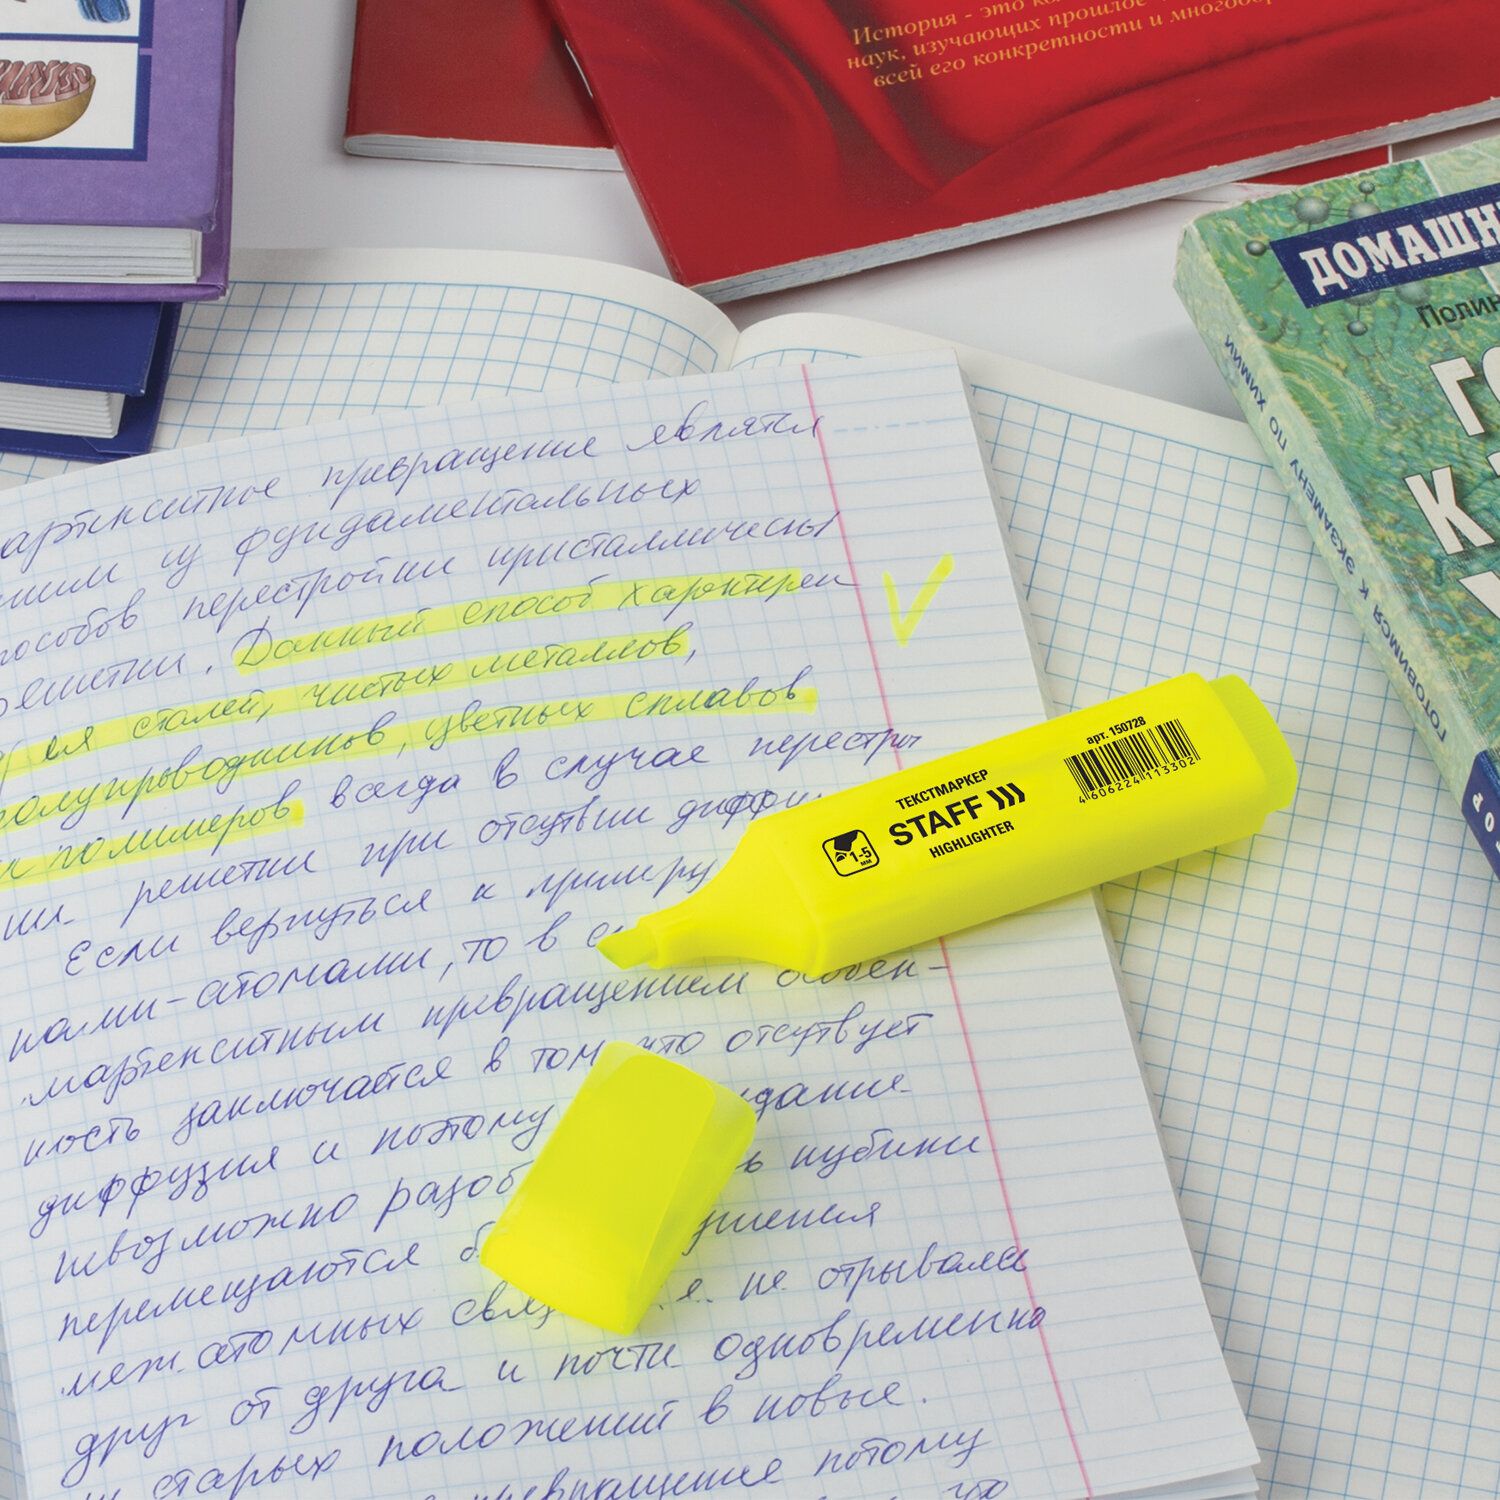 История - это ко
наук, изучающих прошлое
всей его конкретности и многооб
ДОМАШН
Полин
ГО
К
ГОТОВИМСЯ К ЭКЗАМЕНУ ПО ХИМИИ
артенситное превращение являятся
ним из фундаментальных
пособов перестройки кристаллическы
решетки. Данный способ характерен
для сталей, чистых металлов,
полупроводников, цветных сплавов
и полимеров всегда в случае перестрой
ки решетки при отсутвии диффу
Если вернуться к примеру
ками-атомами, то в
мартенситным превращением особен-
ность заключается в том, что отсутвует
диффузия и поэтому здание
невозможно разоб ь кубики
перемещаются ушения
межатомных связ т.е. не отрываясь
друг от друга и почти одновременно
из старых положений в новые.
превращение потому
что
арт. 150728
4 606224 113302
ТЕКСТМАРКЕР
STAFF
HIGHLIGHTER
1-5
мм